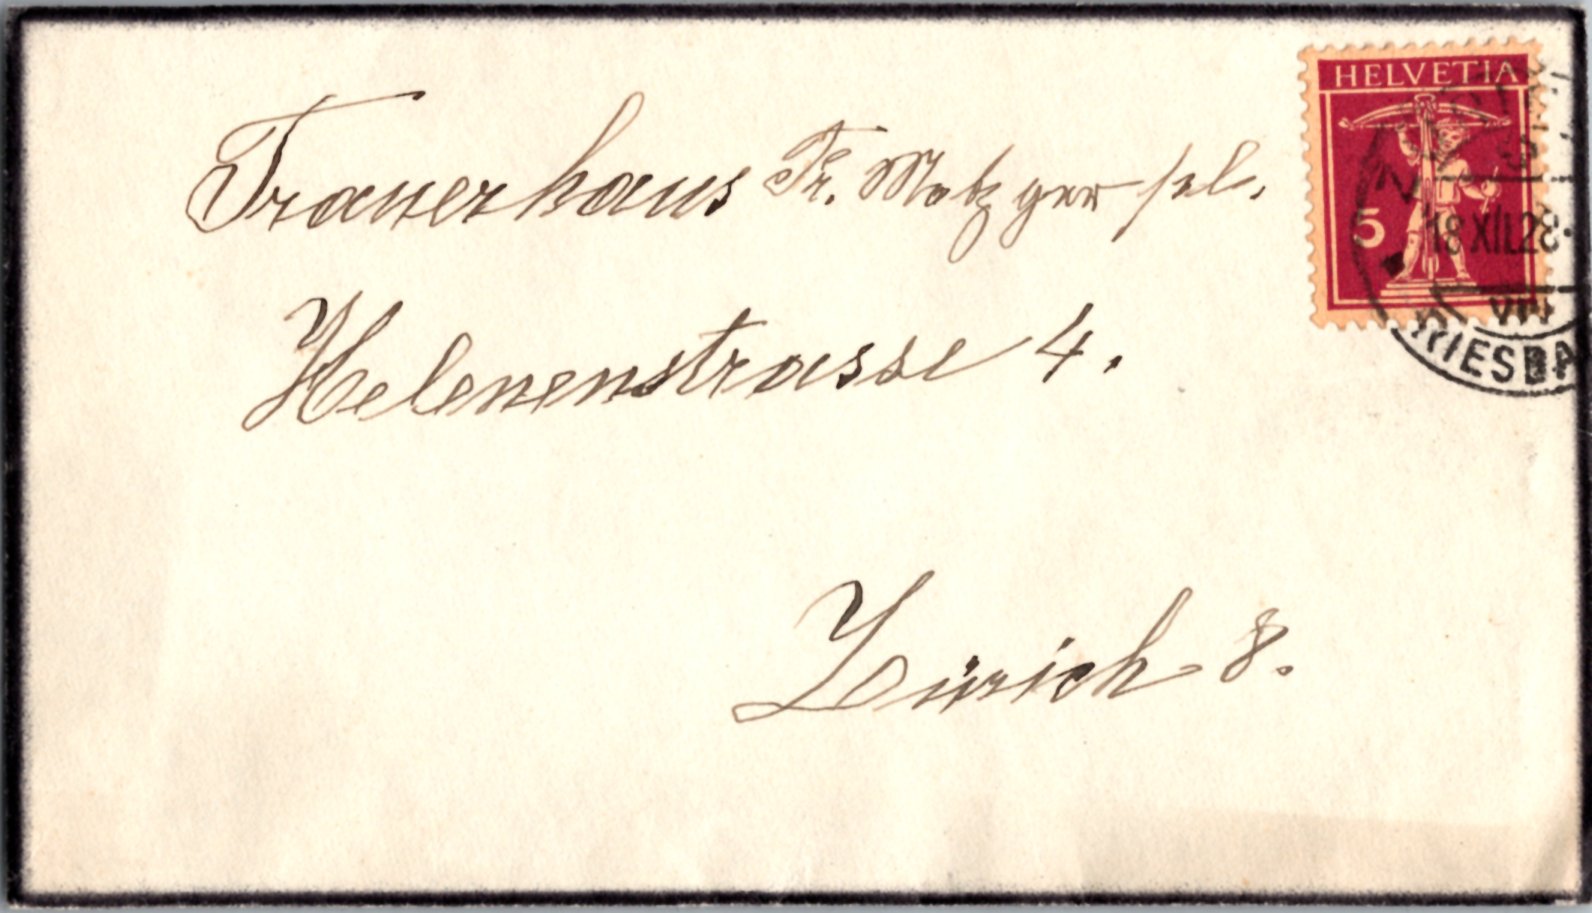 Trauerhaus Fr. Metzger sel.
Helenenstrasse 4.
Zürich 8.
HELVETIA
5
18 XII.28
VIII
RIESBA